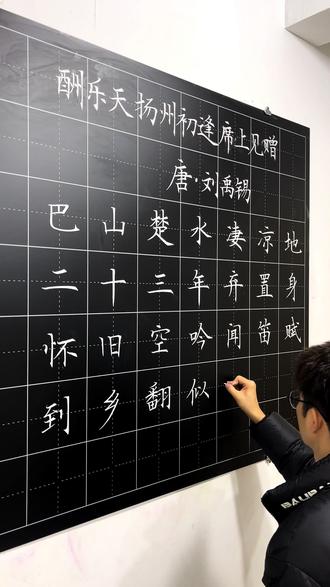 酬乐天扬州初逢席上见赠
唐·刘禹锡
巴山楚水凄凉地
二十三年弃置身
怀旧空吟闻笛赋
到乡翻似